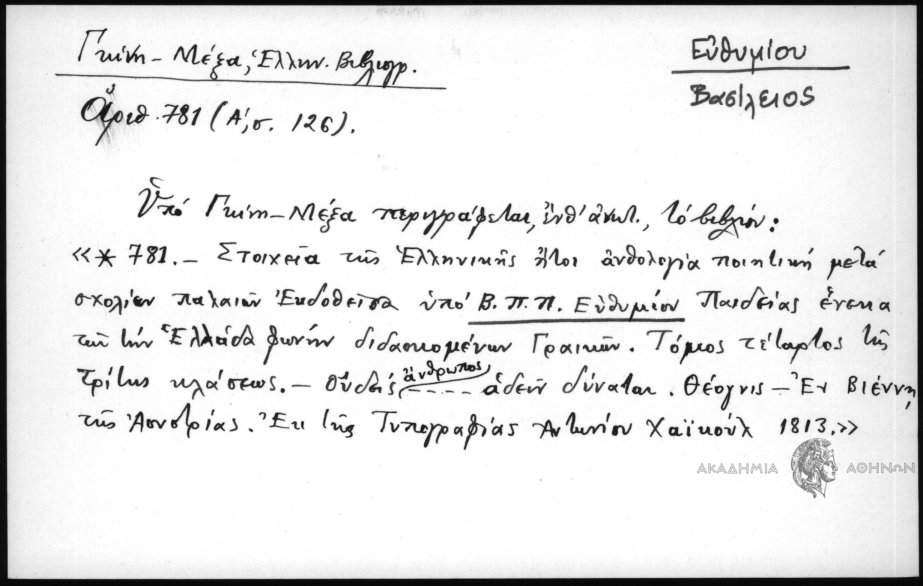 Γκίνη – Μέξα, Ἑλλην. Βιβλιογρ.
Εὐθυμίου
Βασίλειος
ἀριθ. 781 (Α΄, σ. 126).
Ὑπό Γκίνη – Μέξα περιγράφεται, ἐνθ' ἀνωτ., τό βιβλίον:
«* 781. – Στοιχεῖα τῆς Ἑλληνικῆς ἤτοι ἀνθολογία ποιητική μετά
σχολίων παλαιῶν Ἐκδοθεῖσα ὑπό Β. Π. Π. Εὐθυμίου Παιδείας ἕνεκα
τῶν τήν Ἑλλάδα φωνήν διδασκομένων Γραικῶν. Τόμος τέταρτος τῆς
τρίτης κλάσεως. – Οὐδείς ἄνθρωπος ..... ἀδεῖν δύναται. Θέογνις – Ἐν Βιέννῃ
τῆς Ἀουστρίας. Ἐκ τῆς Τυπογραφίας Ἀντωνίου Χαϊκούλ 1813.»
ΑΚΑΔΗΜΙΑ ΑΘΗΝΩΝ